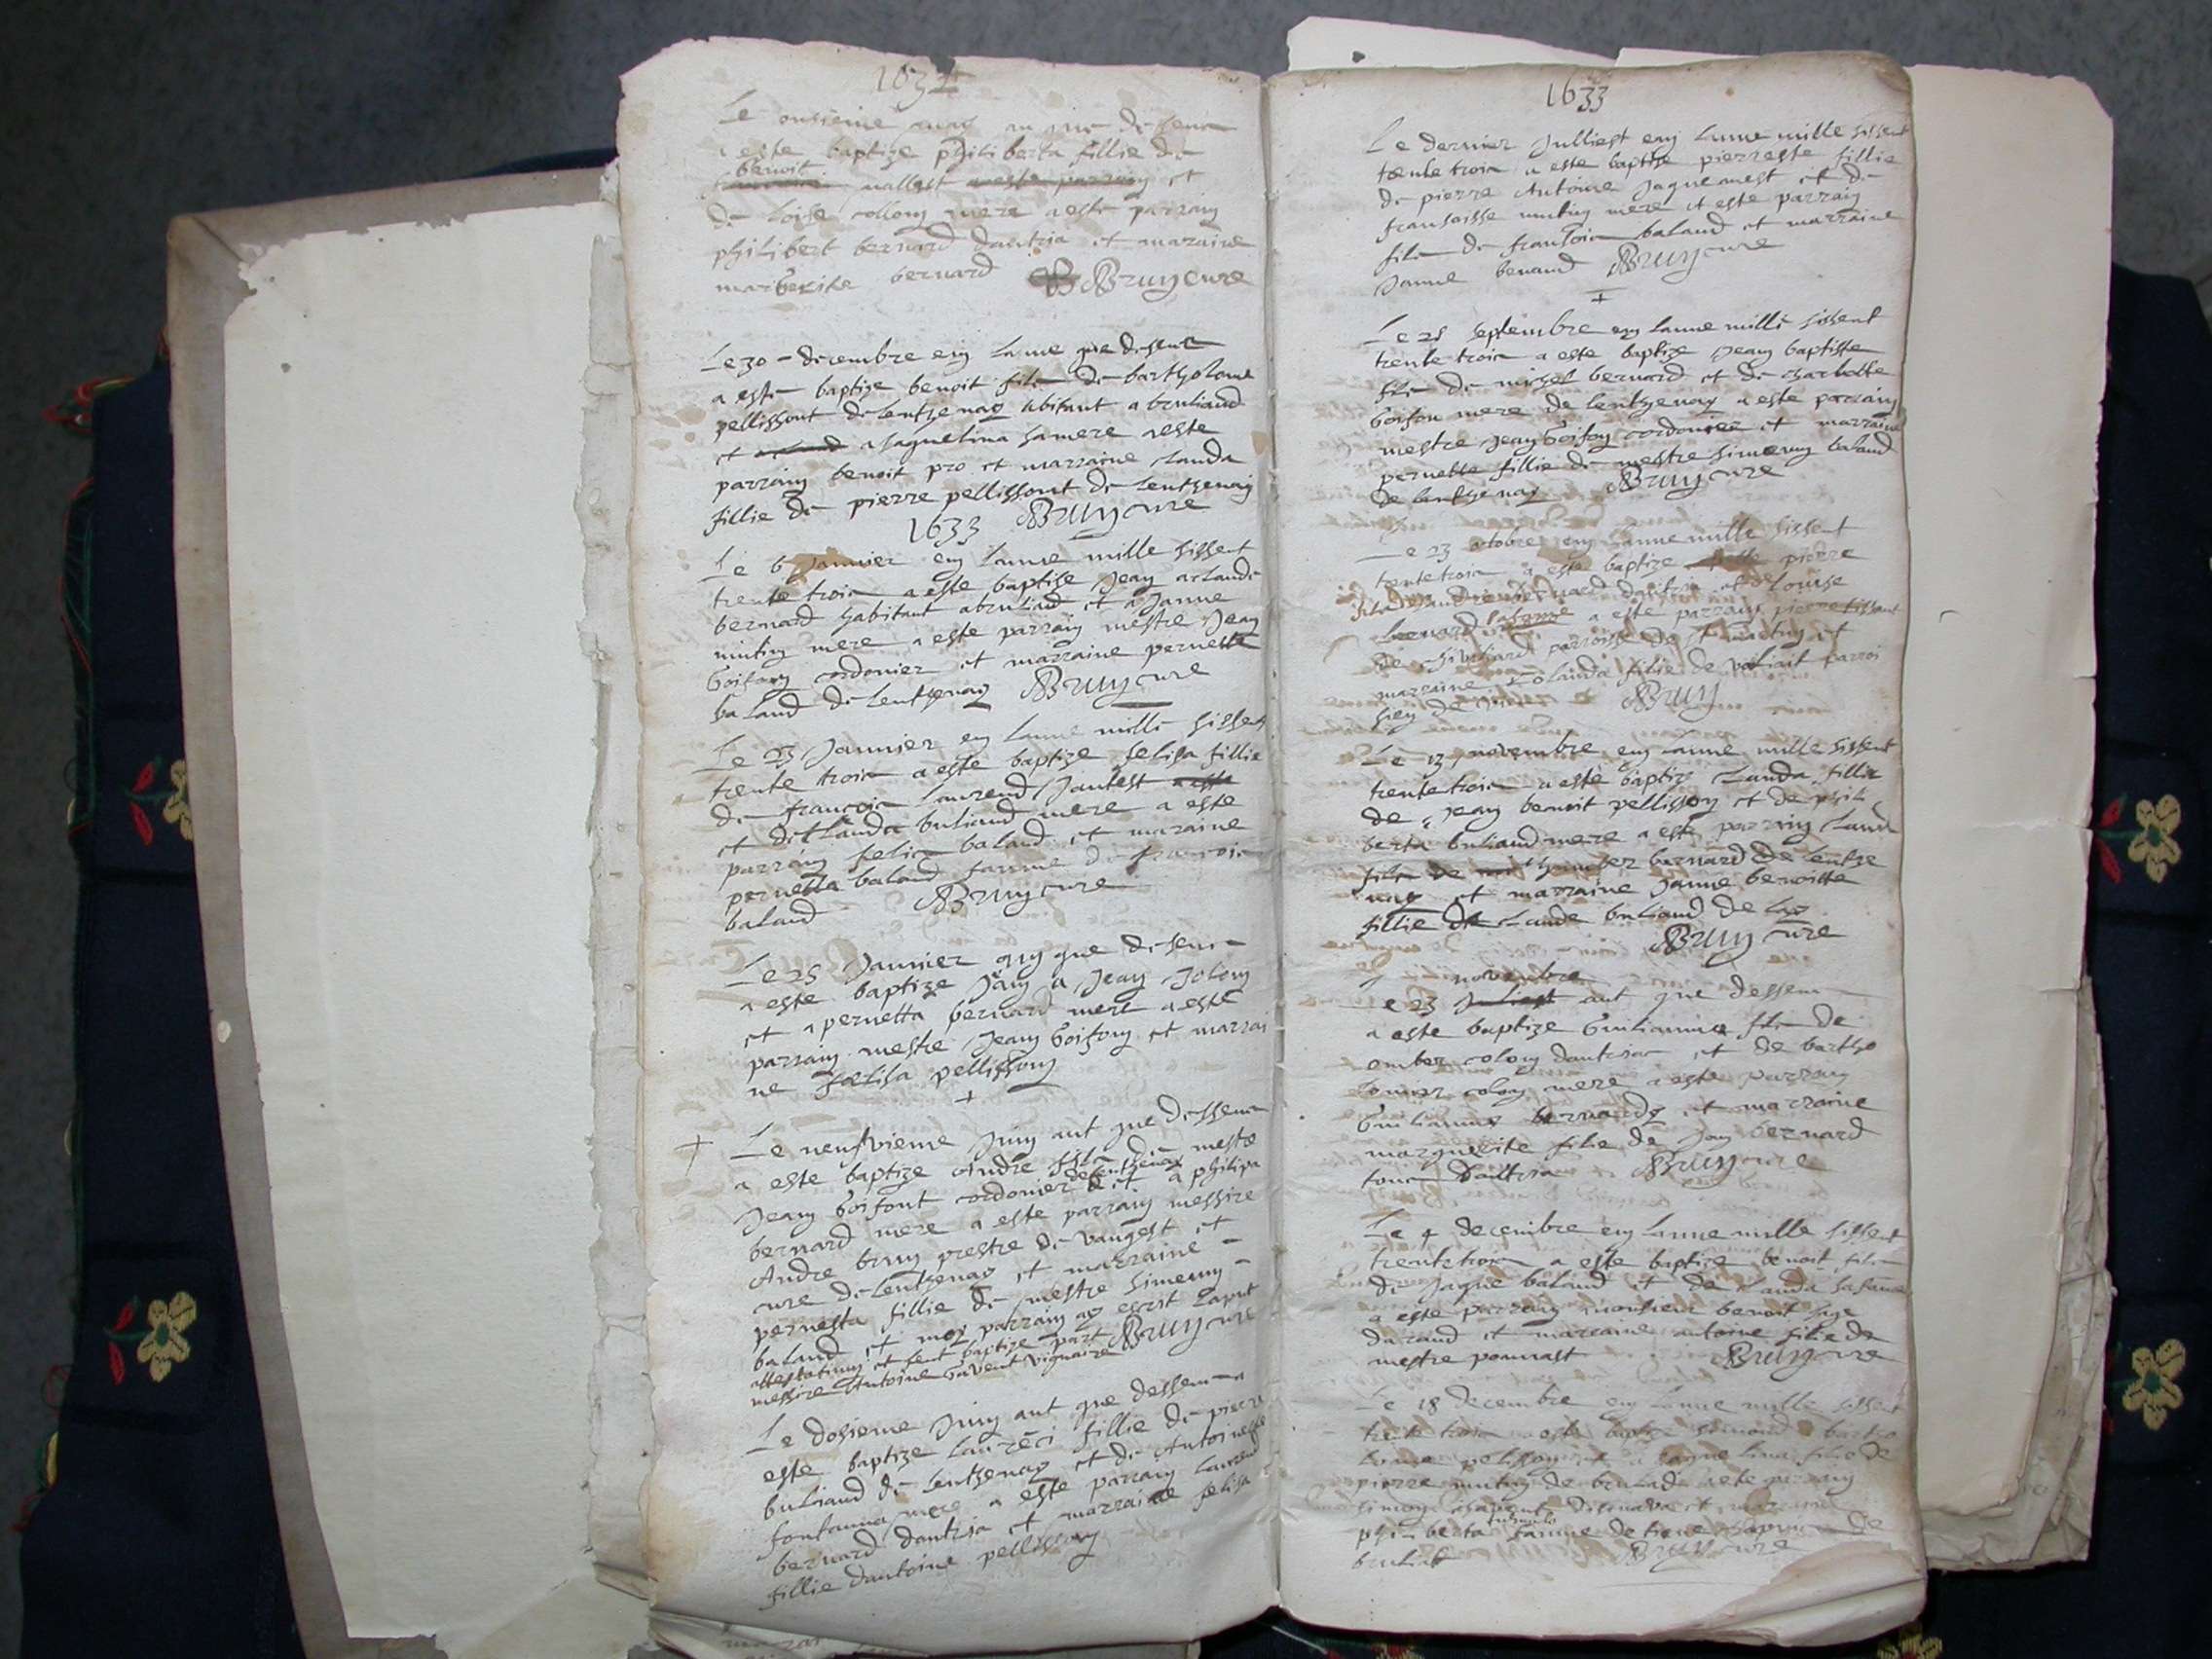 1632
Le onsieme may an que desus
a este baptize philiberta fillie de
benoit
nallest a este parrain et
de loise collong mere a este parrain
philibert bernard dautria et maraine
marberite bernard Bruny cure
Le 30 decembre en lanne que desus
a este baptize benoit fils de bartholome
pellissont de lentzenay abitant a bruliand
et a Jaquelina sa mere a este
parrain benoit pro et marraine clauda
fillie de pierre pellissont de lentzenay
1633 Bruny cure
Le 6 Janvier en lanne mille sissent
trente trois a este baptize Jean a claude
bernard habitant a bruliand et a Janne
mutin mere a este parrain mestre Jean
Goifon cordonier et marraine pernette
baland de lentzenay Bruny cure
Le 23 Janvier en lanne mille sissent
trente trois a este baptize felisa fillie
de francois laurend Jantest
et de clauda buliand mere a este
parrain felix baland et maraine
pernetta baland famme de francois
baland Bruny cure
Le 25 Janvier an que desus
a este baptize Jan a Jean Jolong
et a pernetta bernard mere a este
parrain mestre Jean Goifon et marrai
ne felisa pellisson
Le neufvieme Juin ant que dessus
a este baptize Andre fils de mestre
Jean Goifont cordonier de lentzenay et a philipa
bernard mere a este parrain messire
Andre brun prestre de vangest et
cure de lentzenay et marraine
pernesta fillie de mestre Simeung
baland et moy parrain ay escrit laput
attestation et feut baptize part Bruny cure
messire Antoine Gavent vignaire
Le dosieme Juin ant que dessus a
este baptize laureci fillie de pierre
buliand de lentzenay et de Antoineste
fontanna mere a este parrain laurend
bernard dautria et marraine felisa
fillie dantoine pellisson
1633
Le dernier Julliest en lanne mille sissent
tente trois a este baptize pierreste fillie
de pierre Antoine Jaquemest et de
fransoisse mutin mere et este parrain
fils de fransois baland et marraine
Janne benaud Bruny cure
Le 25 septembre en lanne mille sissent
trente trois a este baptize Jean baptiste
fils de michel bernard et de charlotte
Goifon mere de lentzenay a este parrain
mestre Jean Goifon cordonier et marraine
pernette fillie de mestre Simeung baland
de lentzenay Bruny cure
Le 23 octobre en lanne mille sissent
tente trois a este baptize pierre
fils de andre bernard dautria et de Louise
bernard sa famme a este parrain pierre tissant
de chivuliard parroisse de St martin et
marraine Clauda fillie de parroi
sien de Bruny
Le 13 novembre en lanne mille sissent
trente trois a este baptize Clauda fillie
de Jean benoit pellisson et de phili
berta buliand mere a este parrain Claud
fils de humber bernard de lentze
nay et marraine Janne benoitte
fillie de claude buliand de lay
Bruny cure
novembre
Le 23 Juliest ant que dessus
a este baptize Guilianme fils de
omber colong dautria et de bartho
lomier colong mere a este parrain
Guilianme bernard et marraine
marguerite filie de Jan bernard
tous dautria Bruny cure
Le 4 decembre en lanne mille sissent
trente trois a este baptize benoit fils
de Jaque baland et de Clauda sa famme
a este parrain monsieur benoit sage
durand et marraine antoine filie de
mestre pounast Bruny cure
Le 18 decembre en lanne mille sissent
trente trois a este baptize simond a bartho
lome pelisson et a Jaquelina filie de
pierre mutin de bruliad a este parrain
simon et marraine
philiberta famme de de
bruliat Bruny cure